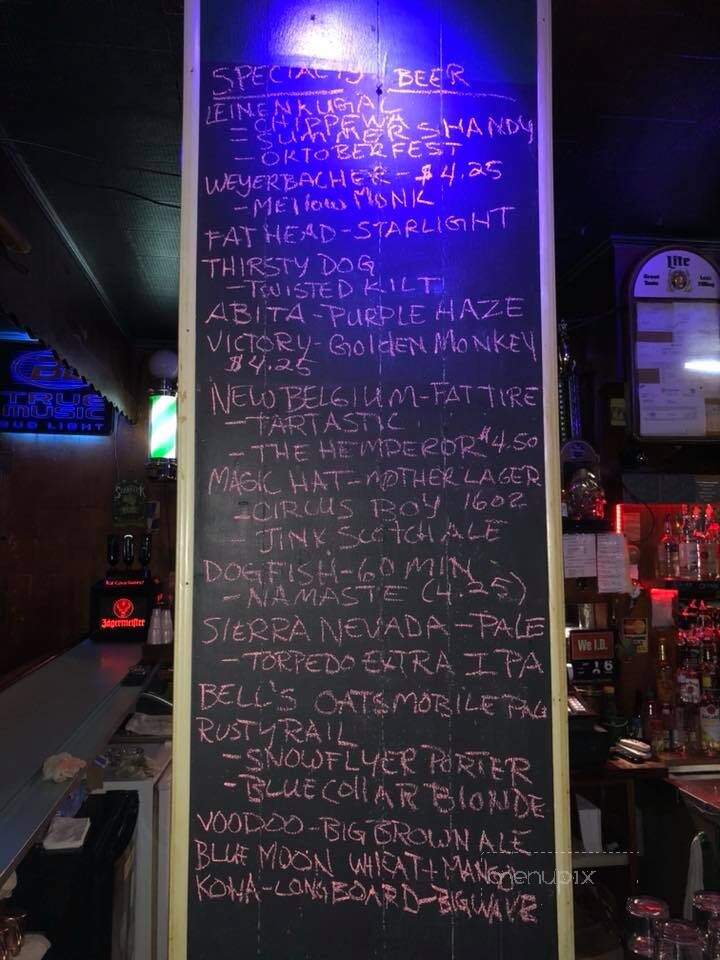 SPECIALTY BEER
LEINENKUGAL
- CHIPPEWA
- SUMMER SHANDY
- OKTOBERFEST
WEYERBACHER - $4.25
- MEllOW MONK
FAT HEAD - STARLIGHT
THIRSTY DOG
- TWISTED KILT
ABITA - PURPLE HAZE
VICTORY - GOlDEN MONKEY
$4.25
NEW BELGIUM - FAT TIRE
- TARTASTIC
- THE HEMPEROR $4.50
MAGIC HAT - MOTHER LAGER
- CIRCUS BOY 16OZ
- JINX SCOTCH ALE
DOGFISH - 60 MIN
- NAMASTE (4.25)
SIERRA NEVADA - PALE
- TORPEDO EXTRA IPA
BELL'S OATSMOBILE PALE
RUSTY RAIL
- SNOWFLYER PORTER
- BLUE COllAR BLONDE
VOODOO - BIG BROWN ALE
BLUE MOON WHEAT + MANGO
KONA - LONGBOARD - BIGWAVE
menupix
Lite
Great Taste
Less Filling
TRUE MUSIC
BUD LIGHT
Jägermeister
We I.D.
16